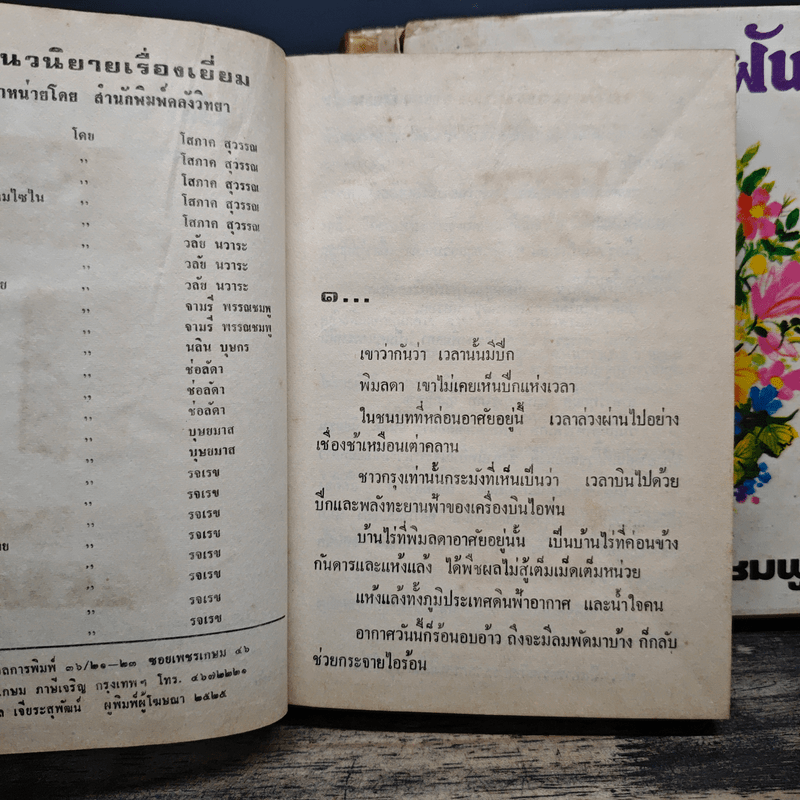 นวนิยายเรื่องเยี่ยม
หน่ายโดย สำนักพิมพ์คลังวิทยา
โดย โสภาค สุวรรณ
,, โสภาค สุวรรณ
,, โสภาค สุวรรณ
มไซไน ,, โสภาค สุวรรณ
,, โสภาค สุวรรณ
,, วลัย นวาระ
,, วลัย นวาระ
ย ,, วลัย นวาระ
,, จามรี พรรณชมพู
,, จามรี พรรณชมพู
,, นลิน บุษกร
,, ช่อลัดา
,, ช่อลัดา
,, ช่อลัดา
,, บุษยมาส
,, บุษยมาส
,, รจเรข
,, รจเรข
,, รจเรข
,, รจเรข
,, รจเรข
,, รจเรข
,, รจเรข
,, รจเรข
ลการพิมพ์ ๓๖/๒๑—๒๓ ซอยเพชรเกษม ๔๖
เกษม ภาษีเจริญ กรุงเทพฯ โทร. ๔๖๗๒๒๒๑
ล เจียระสุพัฒน์ ผู้พิมพ์ผู้โฆษณา ๒๕๒๕
๑...
เขาว่ากันว่า เวลานั้นมีปีก
พิมลดา เขาไม่เคยเห็นปีกแห่งเวลา
ในชนบทที่หล่อนอาศัยอยู่นี้ เวลาล่วงผ่านไปอย่าง
เชื่องช้าเหมือนเต่าคลาน
ชาวกรุงเท่านั้นกระมังที่เห็นเป็นว่า เวลาบินไปด้วย
ปีกและพลังทะยานฟ้าของเครื่องบินไอพ่น
บ้านไร่ที่พิมลดาอาศัยอยู่นั้น เป็นบ้านไร่ที่ค่อนข้าง
กันดารและแห้งแล้ง ได้พืชผลไม่สู้เต็มเม็ดเต็มหน่วย
แห้งแล้งทั้งภูมิประเทศดินฟ้าอากาศ และน้ำใจคน
อากาศวันนี้ก็ร้อนอบอ้าว ถึงจะมีลมพัดมาบ้าง ก็กลับ
ช่วยกระจายไอร้อน
ฝัน
ชมพู